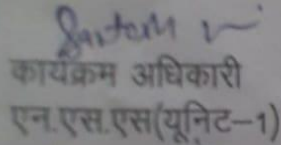 कार्यक्रम अधिकारी
एन.एस.एस(यूनिट–1)